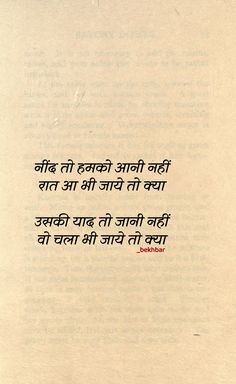 नींद तो हमको आनी नहीं
रात आ भी जाये तो क्या
उसकी याद तो जानी नहीं
वो चला भी जाये तो क्या
_bekhbar